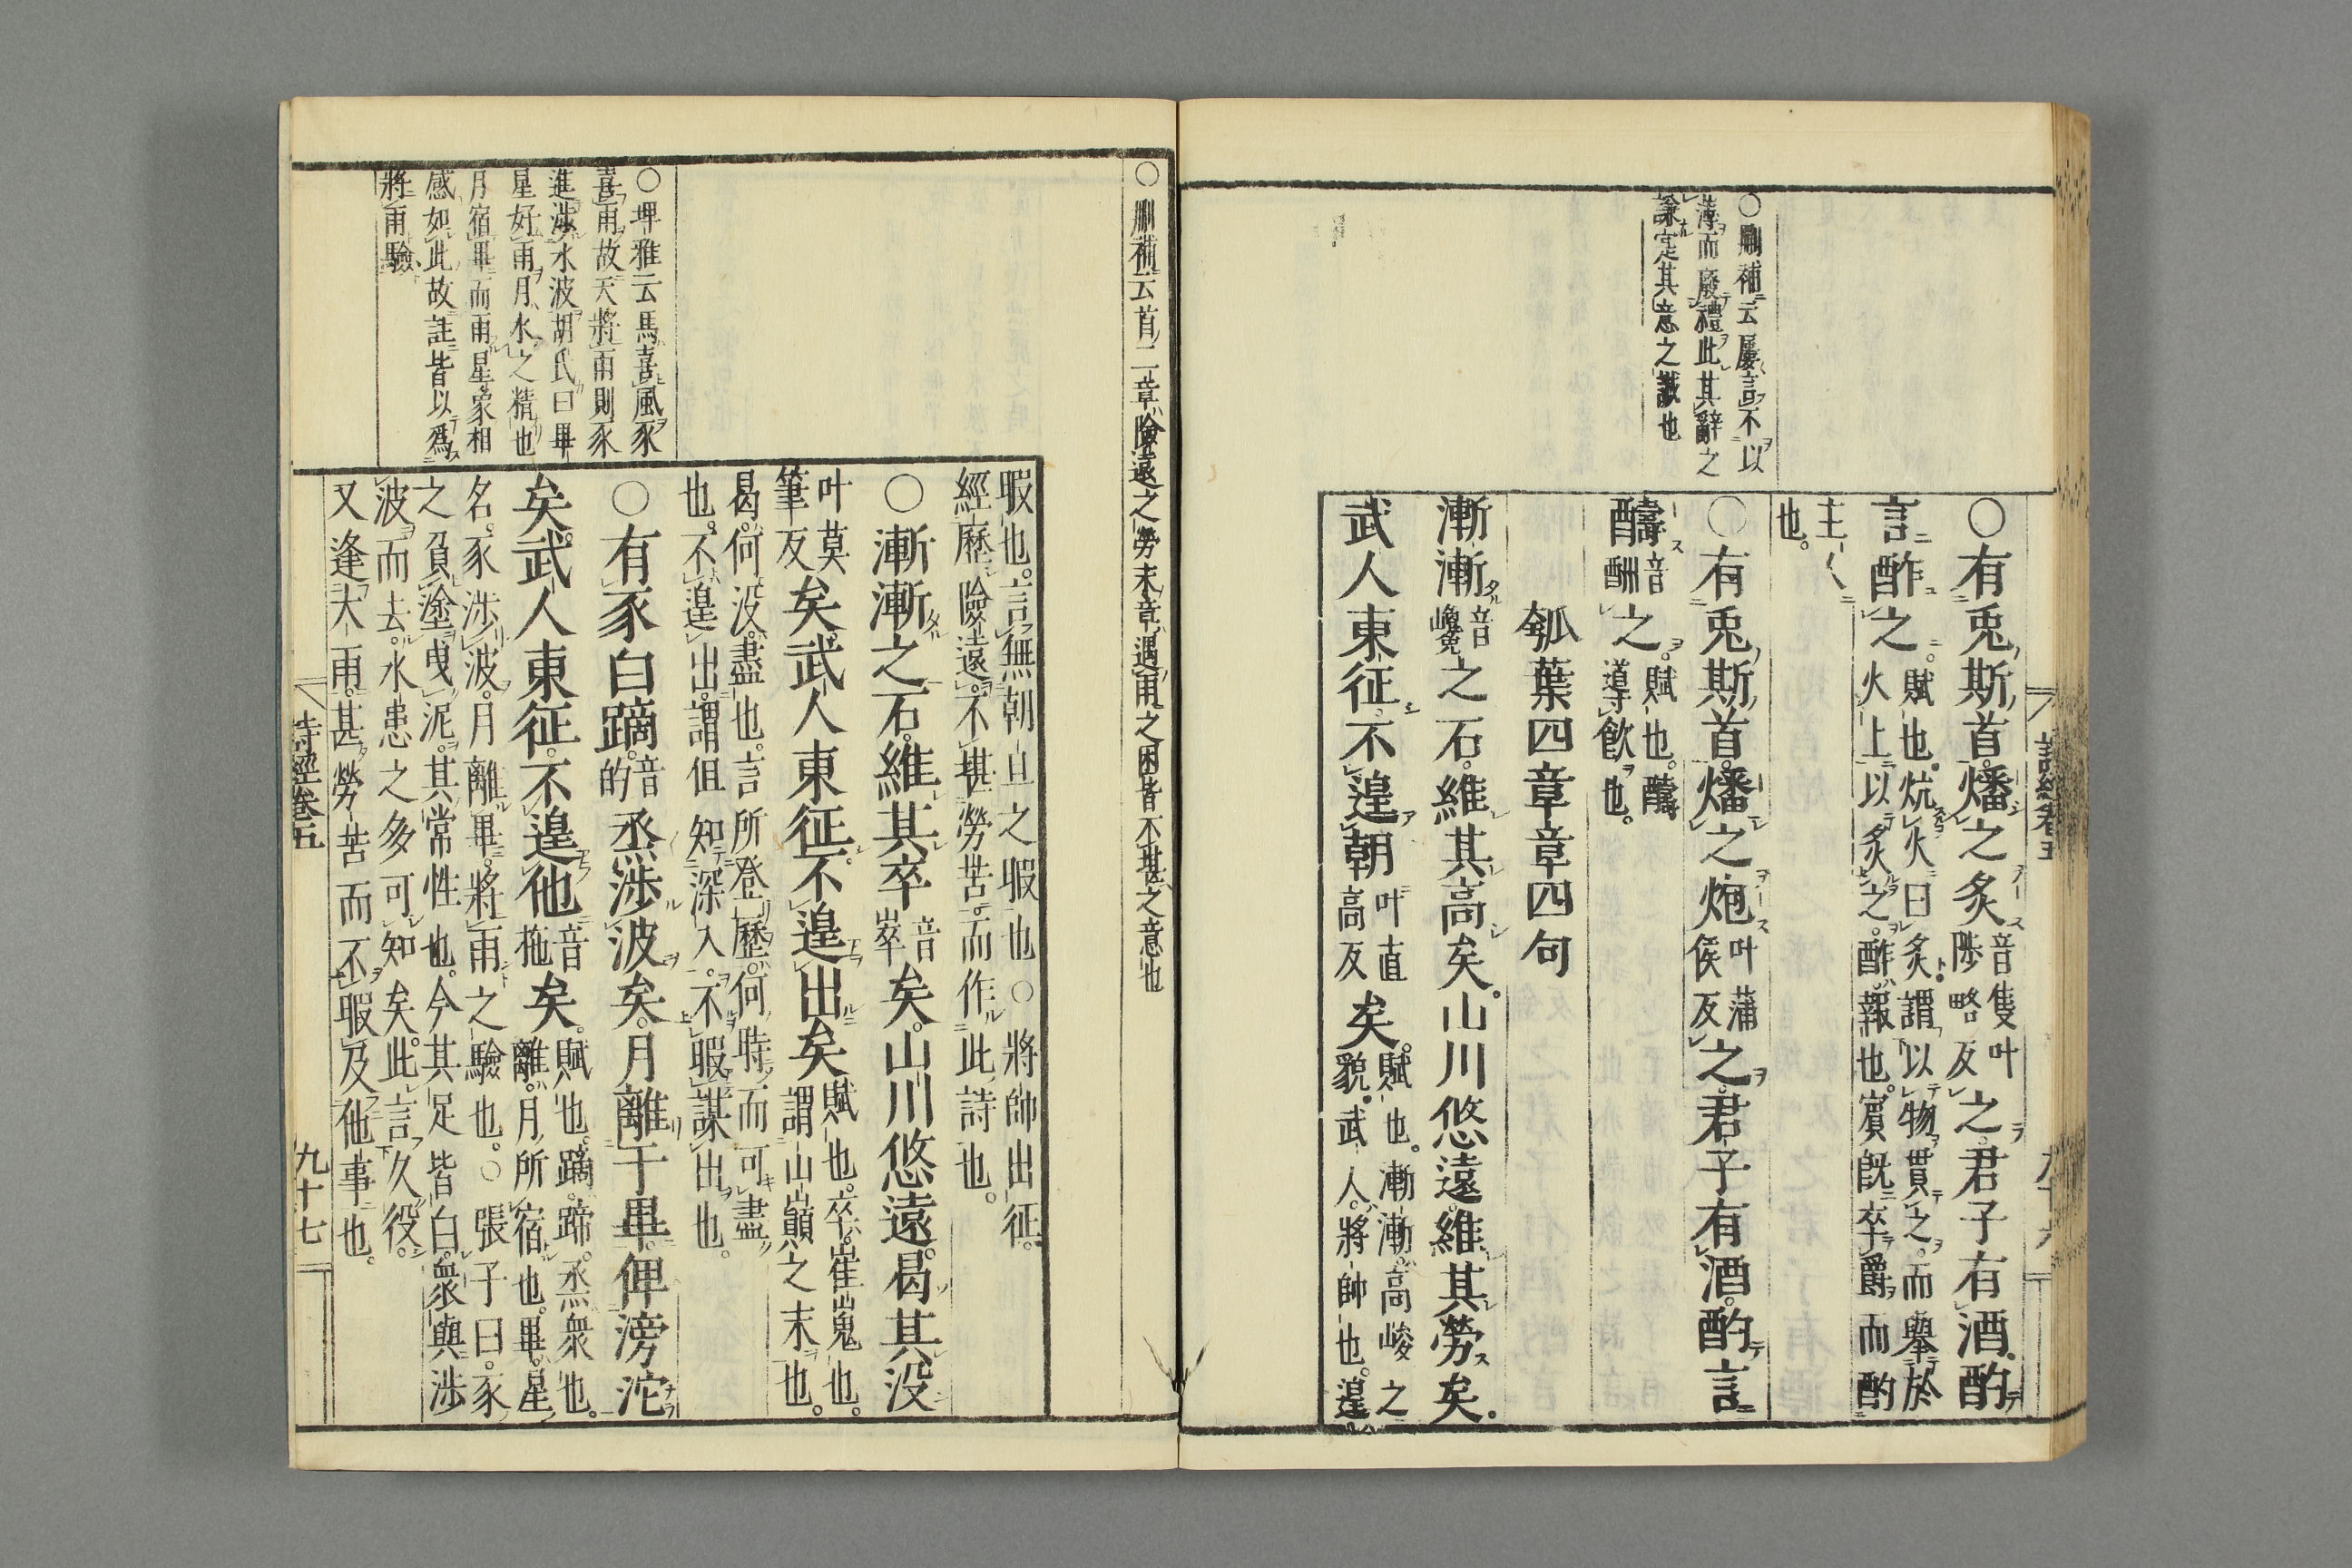 ○刪補云屢言不以
薄而廢禮此其辭之
謙定其意之誠也
○有兎斯首燔之炙音隻叶陟略反之君子有酒酌
言酢之賦也炕火曰炙謂以物貫之而舉於火上以炙之酢報也賓既卒爵而酌
主人也
○有兎斯首燔之炮叶蒲侯反之君子有酒酌言
醻音酬之賦也醻導飲也
瓠葉四章章四句
漸漸音巉之石維其高矣山川悠遠維其勞矣
武人東征不遑朝叶直高反矣賦也漸漸高峻之貌武人將帥也遑
○刪補云首二章險遠之勞末章遇雨之困皆不堪之意也
○埤雅云馬喜風豕
喜雨故天將雨則豕
進涉水波胡氏曰畢
星好雨月水之精也
月宿畢而雨星象相
感如此故註皆以爲
將雨驗
暇也言無朝旦之暇也○將帥出征
經歷險遠不堪勞苦而作此詩也
○漸漸之石維其卒音崒矣山川悠遠曷其没
叶莫筆反矣武人東征不遑出矣賦也卒崔嵬也謂山巔之末也
曷何没盡也言所登歷何時而可盡
也不遑出謂但知深入不暇謀出也
○有豕白蹢音的烝涉波矣月離于畢俾滂沱
矣武人東征不遑他音拖矣賦也蹢蹄烝衆也離月所宿也畢星
名豕涉波月離畢將雨之驗也○張子曰豕
之負塗曳泥其常性也今其足皆白衆與涉
波而去水患之多可知矣此言久役
又逢大雨甚勞苦而不暇及他事也
詩經卷五
九十七